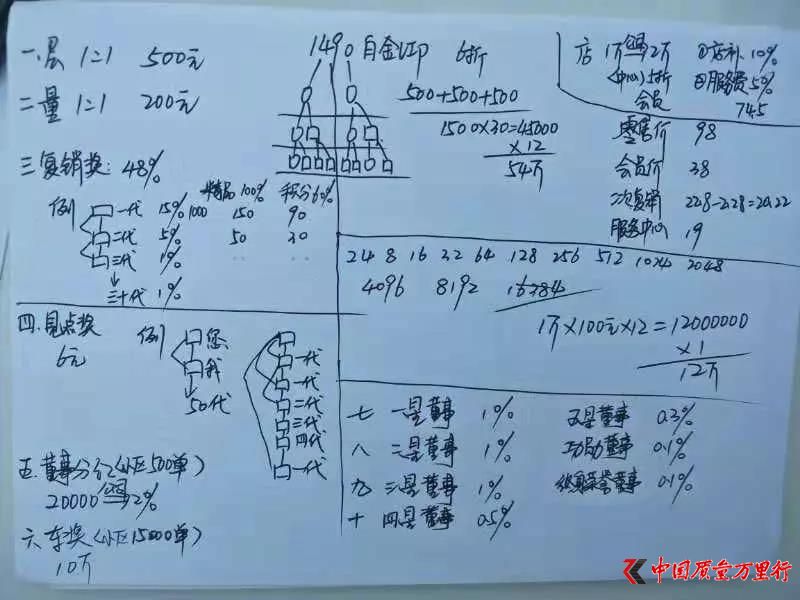 一.层 1:1 500元
二量 1:1 200元
三复销奖: 48%
精品100% 积分60%
例 一代 15% 1000 150 90
二代 5% 50 30
三代 1%
三十代 1%
四.见点奖
6元
例 您
我
50代
一代
一代
二代
三代
四代
一代
五.董事分红(小区500单)
2%
六.车奖(小区15000单)
10万
1490 白金VIP 6折
500+500+500
1500×30=45000
×12
54万
店 1万 2万 ①店补10%
(中心)5折 ②服务费5%
会员 745
零售价 98
会员价 38
二次复销 228-2.28=20.22
服务中心 19
2 4 8 16 32 64 128 256 512 1024 2048
4096 8192 16384
1万×100元×12=12000000
×1
12万
七 一星董事 1% 五星董事 0.3%
八 二星董事 1% 功勋董事 0.1%
九 三星董事 1% 终身荣誉董事 0.1%
十 四星董事 0.5%
中国质量万里行